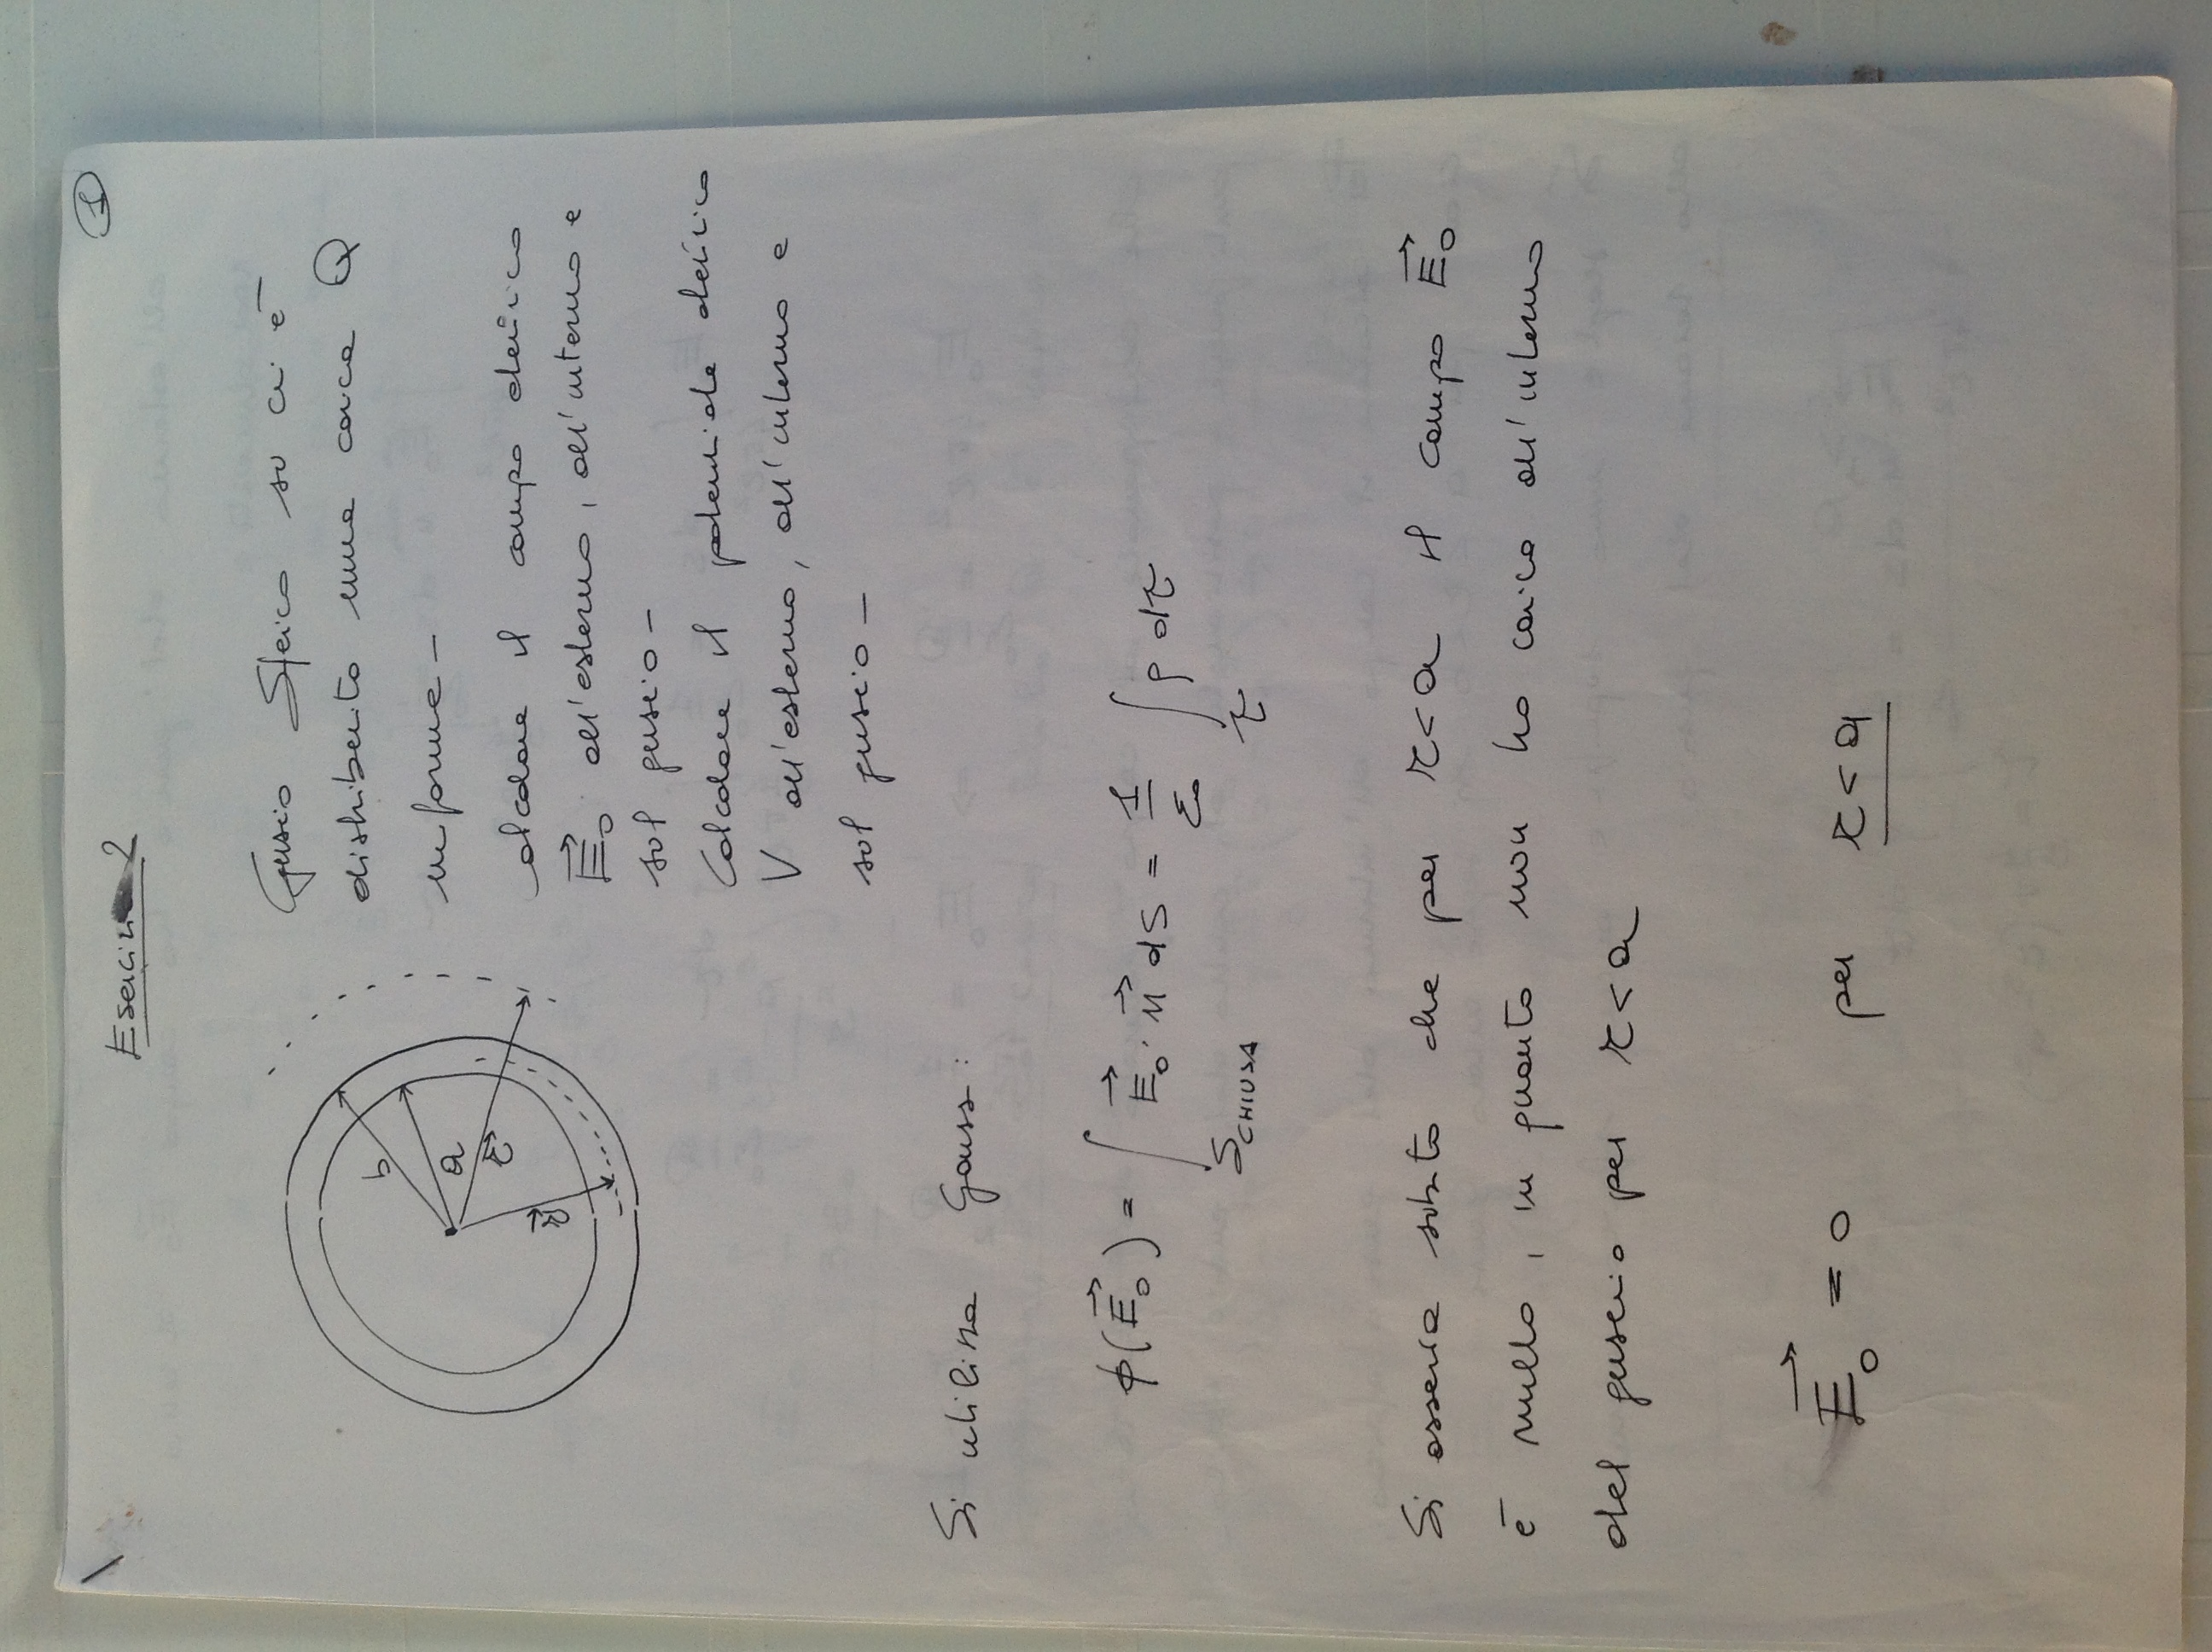 1
Esercizio 2
Guscio Sferico su cui è
distribuita una carica Q
uniforme -
Calcolare il campo elettrico
E₀ all'esterno, all'interno e
sul guscio -
Calcolare il potenziale elettrico
V all'esterno, all'interno e
sul guscio -
b
a
r
r
Si utilizza Gauss:
ϕ(E₀) = ∫ E₀ · n dS = 1/ε₀ ∫ ρ dτ
S CHIUSA τ
Si osserva subito che per r<a il campo E₀
è nullo, in quanto non ho carica all'interno
del guscio per r<a
E₀ = 0 per r<a